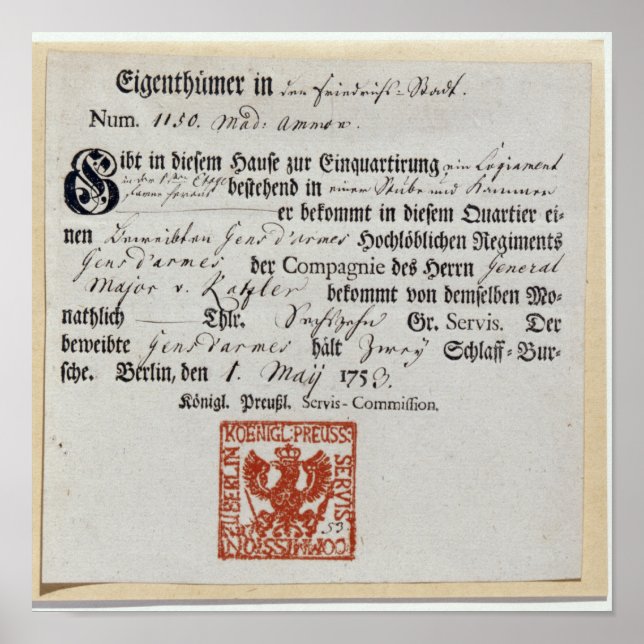 Eigenthümer in der Friedrichs-Stadt.
Num. 1150. Mad: Ammon.
Gibt in diesem Hause zur Einquartirung ein Logiament
in der Etage vorne heraus bestehend in einer Stube und Kammer
er bekommt in diesem Quartier ei-
nen Beweibten Gens d'armes Hochlöblichen Regiments
Gens d'armes der Compagnie des Herrn General
Major v. Katzler bekommt von demselben Mo-
nathlich — Thlr. Sechszehn Gr. Servis. Der
beweibte Gens d'armes hält Zwey Schlaff-Bur-
sche. Berlin, den 1. Maij 1753.
Königl. Preußl. Servis-Commission.
KOENIGL: PREUSS: SERVIS COMMISSION ZU BERLIN
53